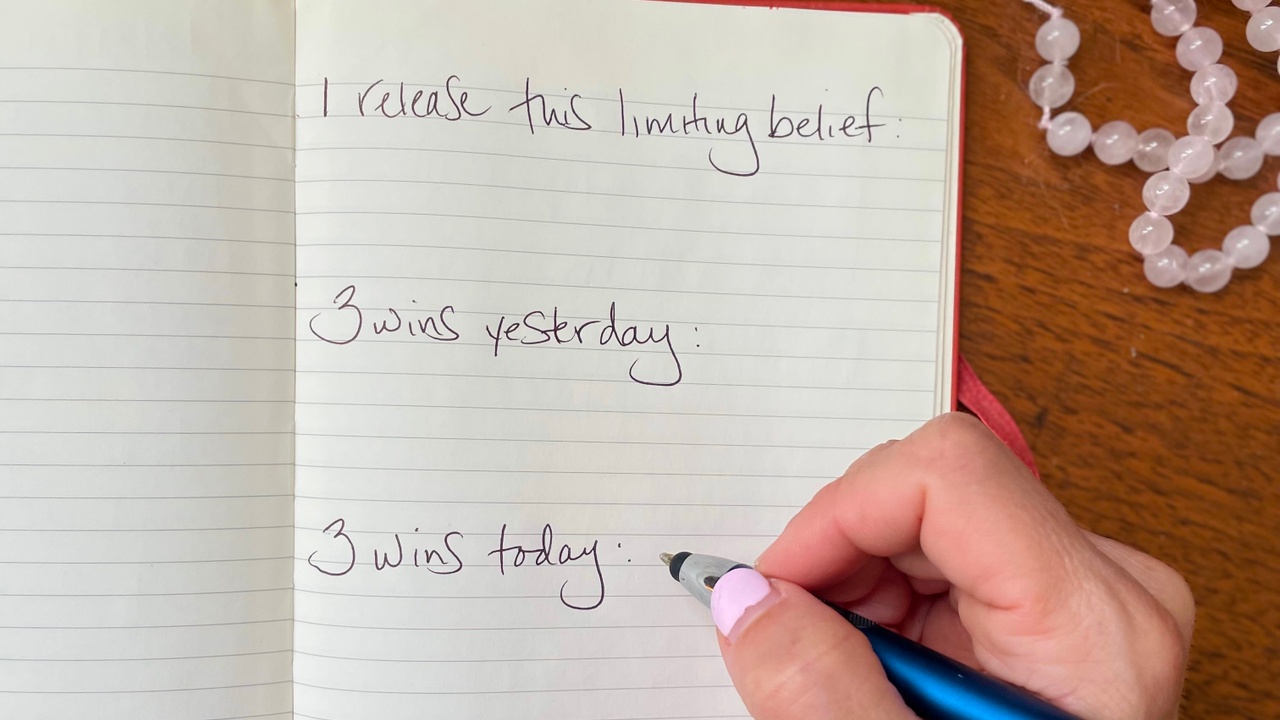 I release this limiting belief:
3 wins yesterday:
3 wins today: